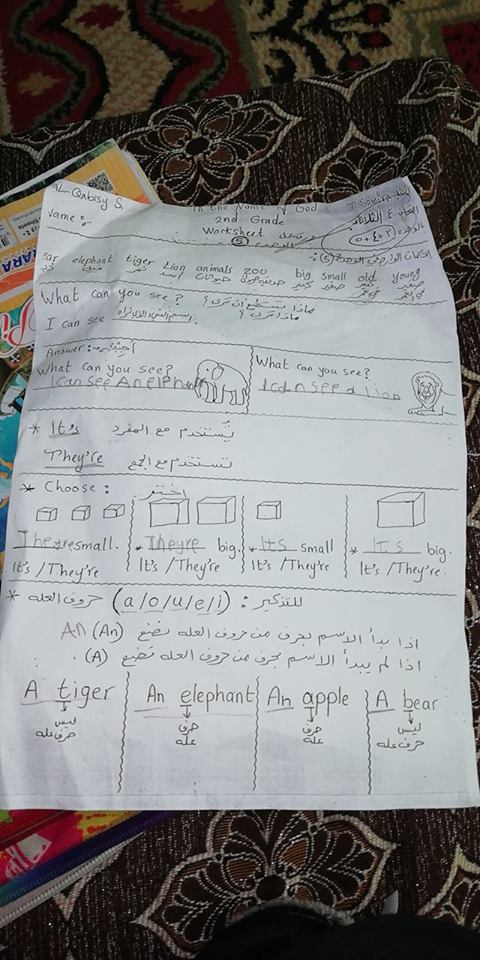 Al-Qabisy S.
In the Name of God
T. Samira
Name :-
2nd Grade
Worksheet
5
ear elephant tiger Lion animals zoo big small old young
What can you see ? ماذا تستطيع ان ترى ؟
I can see
Answer:-
What can you see? What can you see?
I can see An elephant I can see a lion
* It's تستخدم مع المفرد
They're تستخدم مع الجمع
* Choose : اختر
They're small. * They're big. * It's small * It's big.
It's / They're It's / They're It's / They're It's / They're.
* للتذكير : (a/o/u/e/i) حروف العله
اذا بدأ الاسم بحرف من حروف العله نضع (An) AN
اذا لم يبدأ الاسم بحرف من حروف العله نضع (A) .
A tiger An elephant An apple A bear
ليس حرف حرف ليس
حرف عله عله عله حرف عله